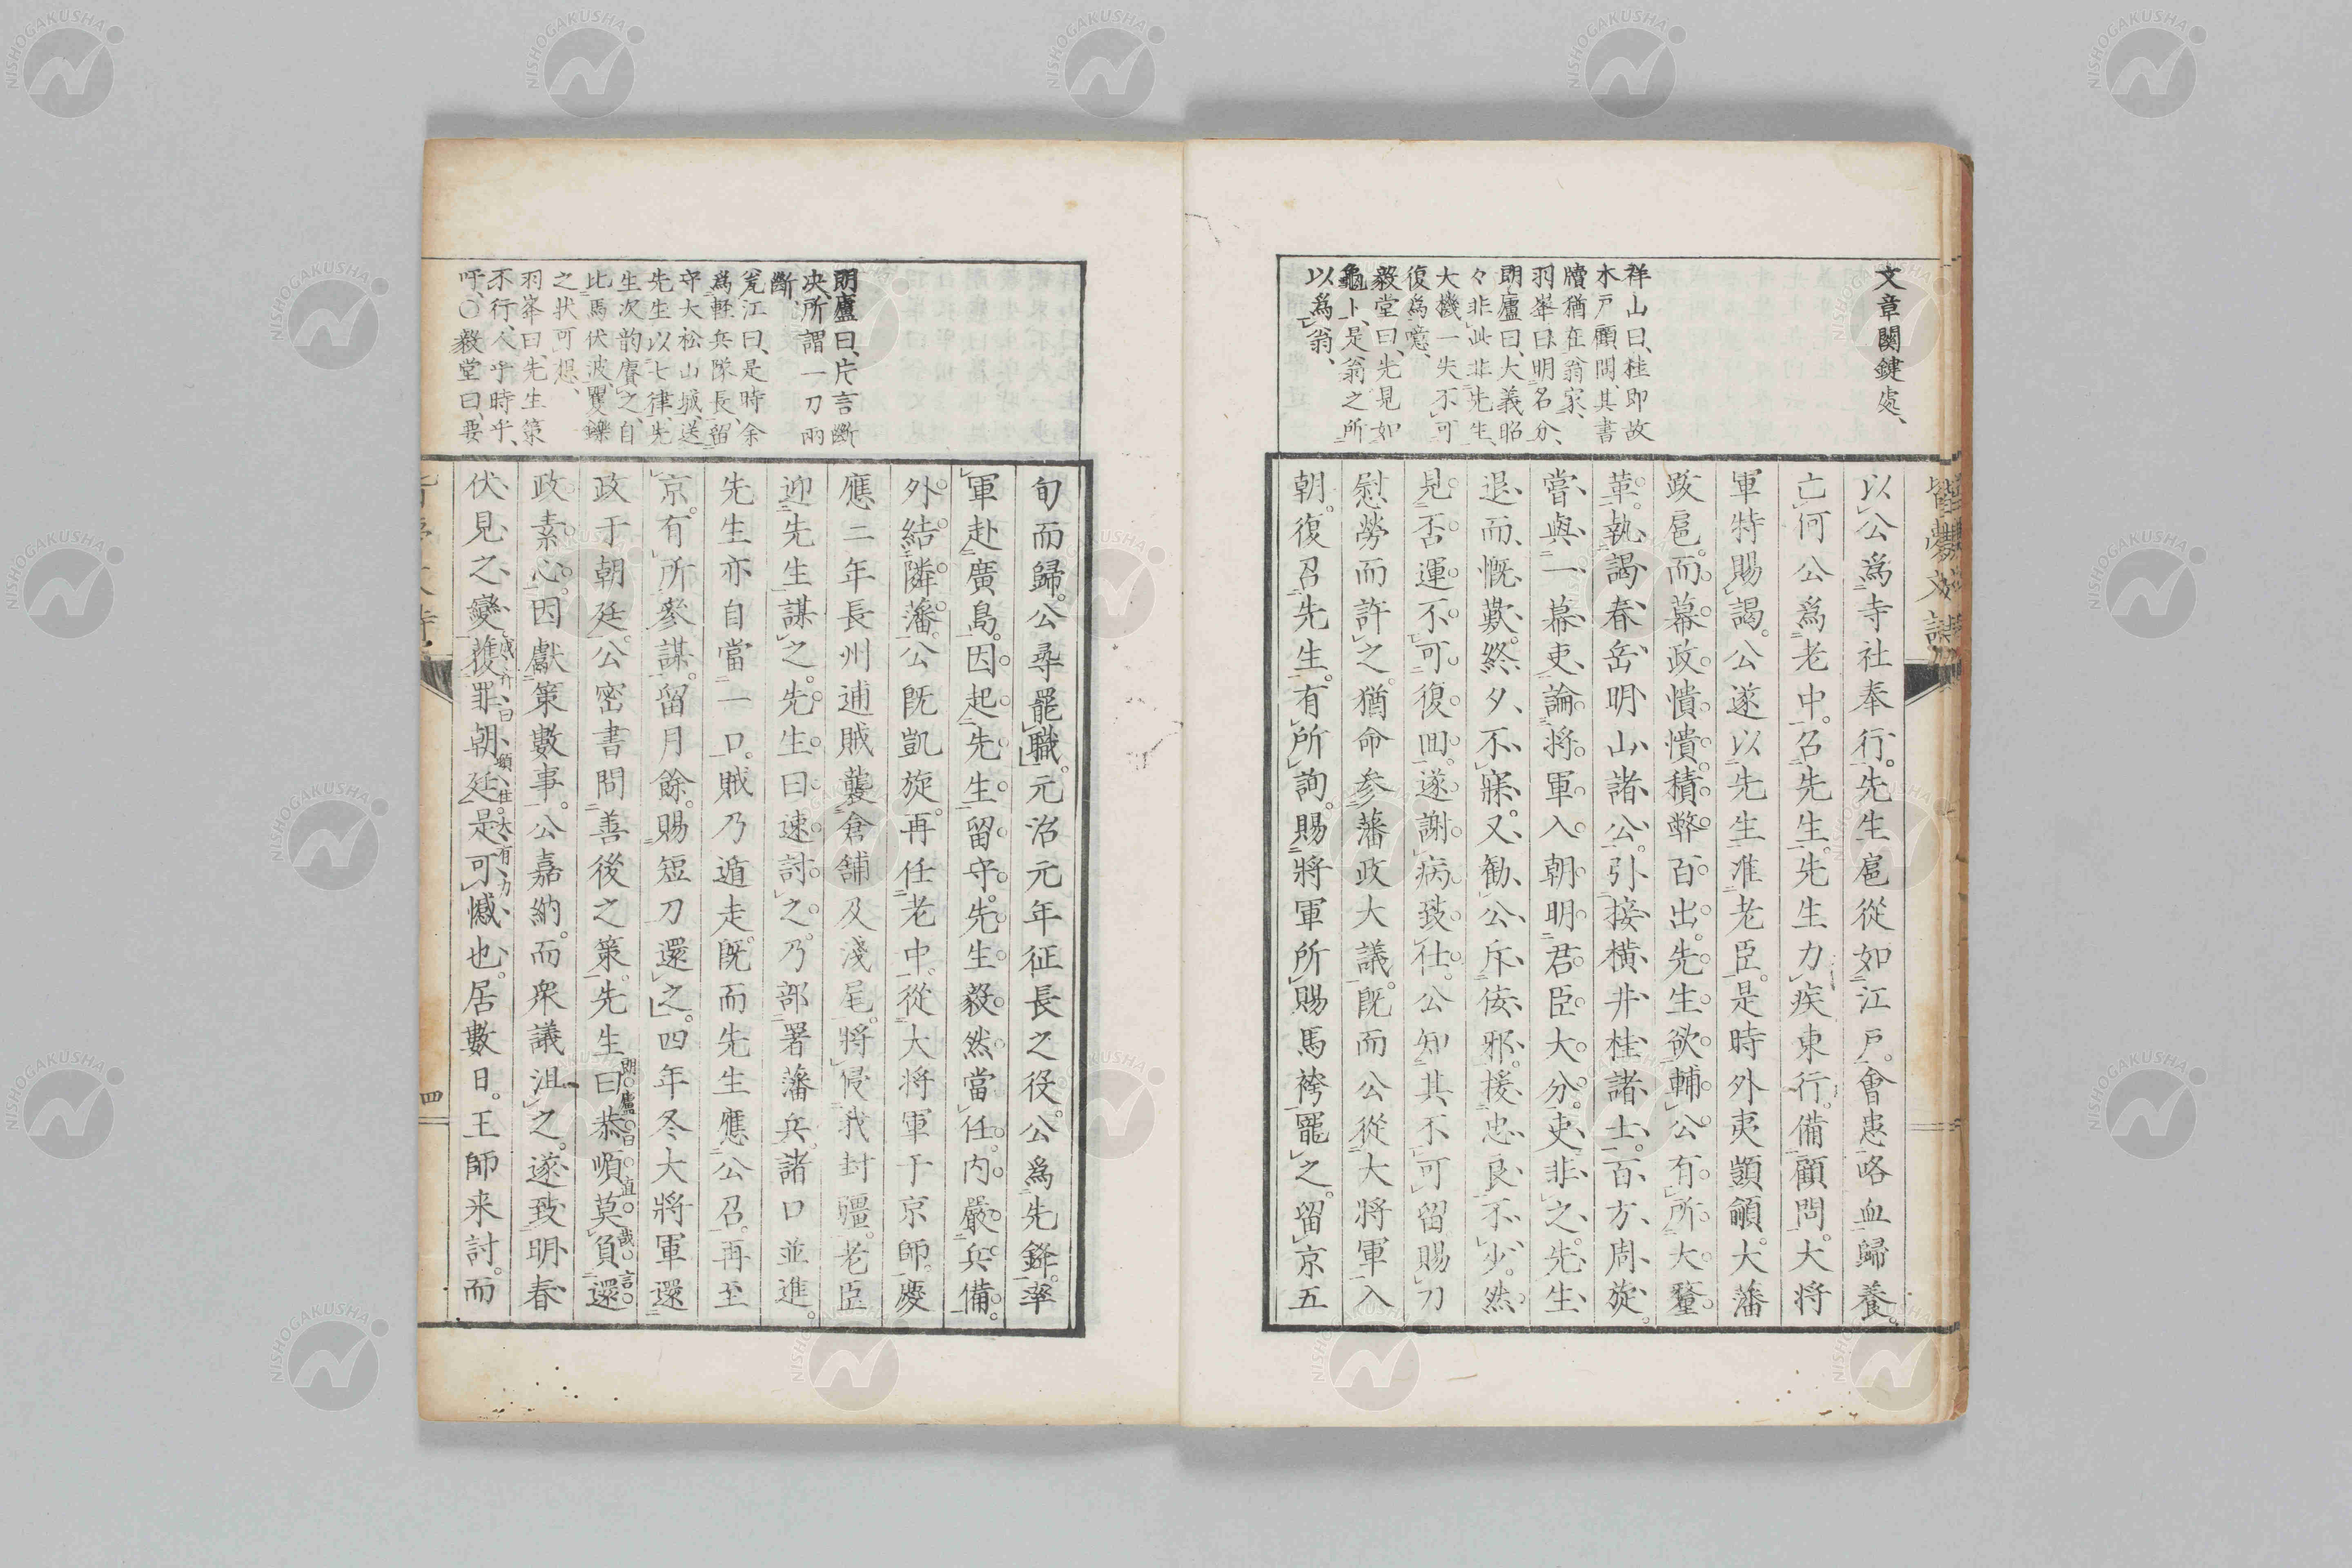 文章關鍵處、
祥山曰、桂即故
木戸顧問、其書
牘猶在翁家、
羽峯曰、明名分、
朗廬曰、大義昭
々非此非先生、
大機一失不可
復爲噫、
毅堂曰、先見如
龜卜、是翁之所
以爲翁、
以公爲寺社奉行。先生扈從如江戸。會患咯血歸養。
亡何公爲老中。召先生。先生力疾東行。備顧問。大将
軍特賜謁。公遂以先生准老臣。是時外夷顗顲。大藩
跋扈。而幕政憒憒。積弊百出。先生欲輔公有所大釐
革。執謁春岳明山諸公。引接横井桂諸士。百方周旋。
嘗與一幕吏論將軍入朝明君臣大分。吏非之。先生
退而慨歎。終夕不寐。又勸公斥侫邪。援忠良不少。然
見否運不可復回。遂謝病致仕。公知其不可留賜刀
慰勞而許之。猶命參藩政大議。既而公從大將軍入
朝。復召先生。有所詢。賜將軍所賜馬袴寵之。留京五
旬而歸。公尋罷職。元治元年征長之役。公爲先鋒。率
軍赴廣島。因起先生留守。先生毅然當任。内嚴兵備。
外結隣藩。公既凱旋。再任老中。從大将軍于京師。慶
應二年長州逋賊襲倉舗及淺尾。將侵我封疆。老臣
迎先生謀之。先生曰速討之。乃部署藩兵。諸口並進。
先生亦自當一口。賊乃遁走。既而先生應公召。再至
京。有所參謀。留月餘。賜短刀還之。四年冬大將軍還
政于朝廷。公密書問善後之策。先生曰恭順莫負還
政素心。因獻策數事。公嘉納。而衆議沮之。遂致明春
伏見之變。獲罪朝廷。是可憾也。居數日。王師来討。而
朗廬曰、片言斷
決、所謂一刀兩
斷、
甕江曰、是時余
爲軽兵隊長、留
守大松山城、送
先生以七律、先
生次韵賡之、自
比馬伏波、矍鑠
之状可想、
羽峯曰、先生策
不行、人乎時乎、
吁、〇毅堂曰、要
朗廬曰直哉言
四